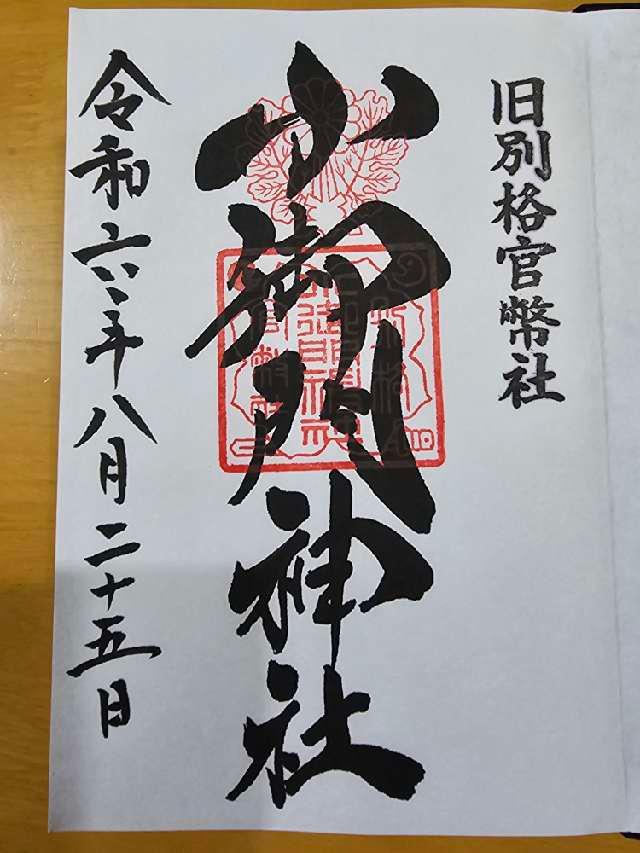 旧別格官幣社
小御門神社
令和六年八月二十五日